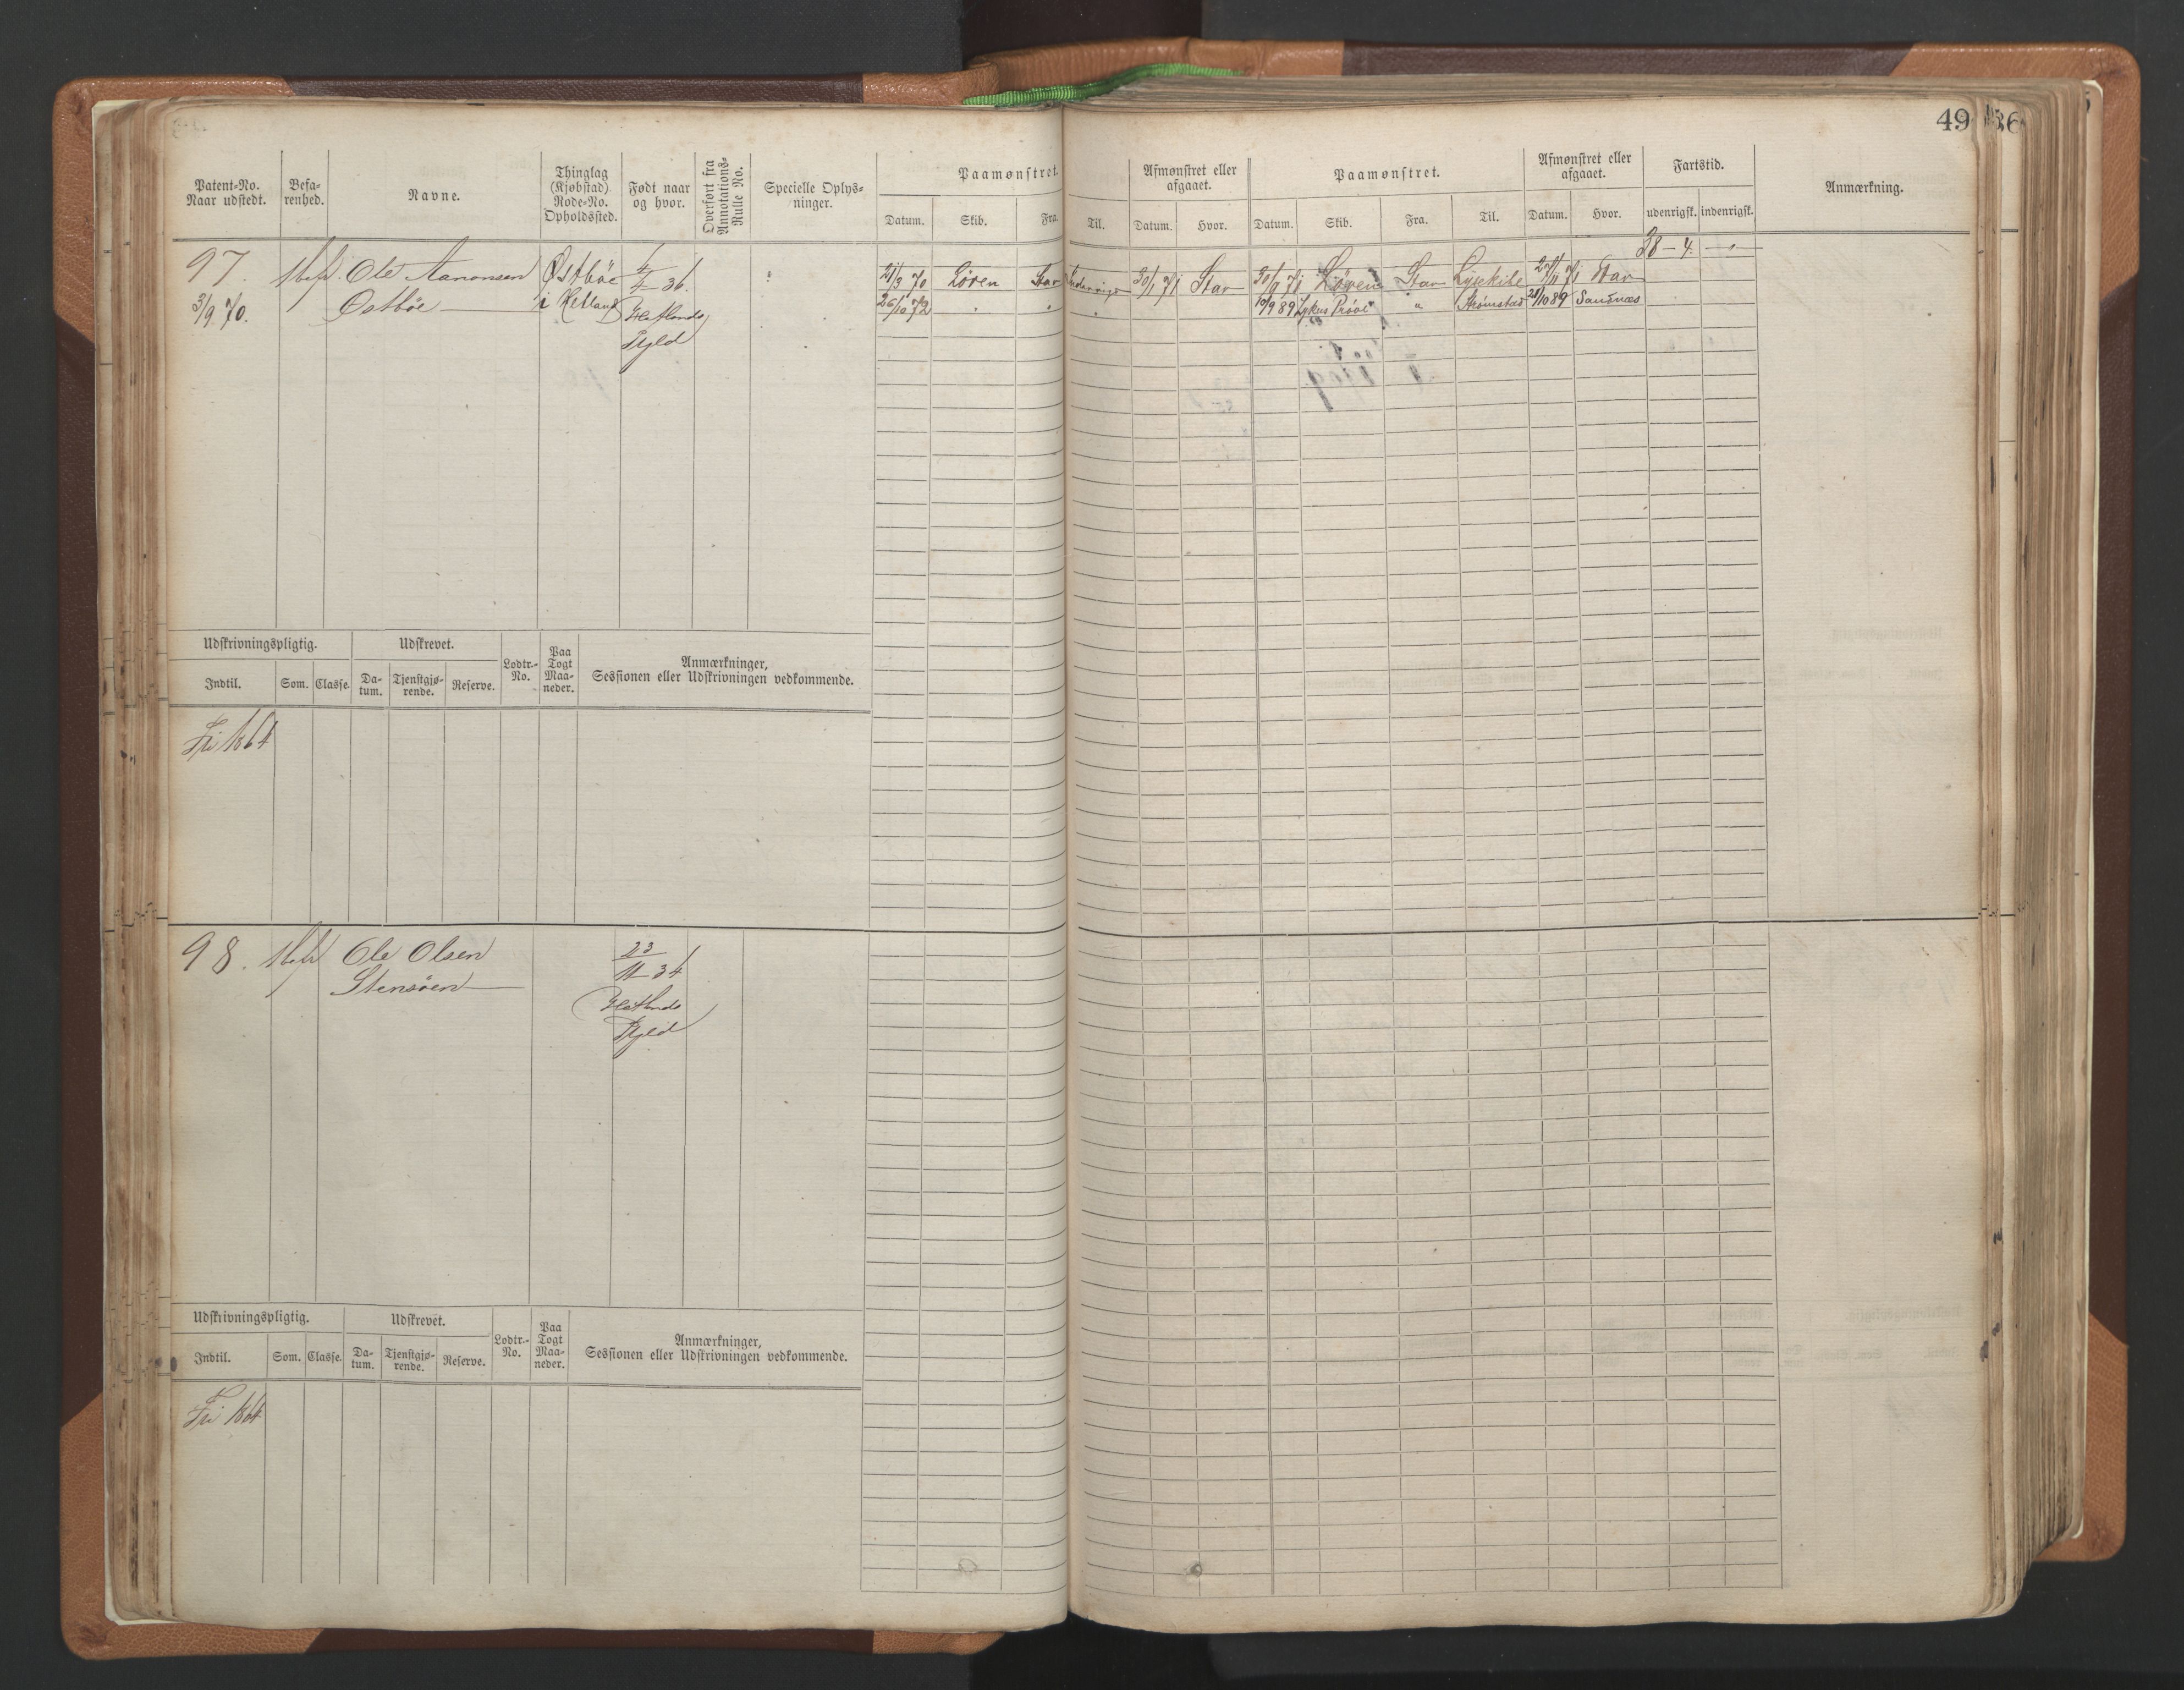 49
36
Patent-No.
Naar udstedt.
Befa-
renhed.
Navne.
Thinglag
(Kjøbstad)
Rode-No.
Opholdssted.
Født naar
og hvor.
Overført fra
Annotations-
Rulle No.
Specielle Oplys-
ninger.
Paamønstret.
Datum.
Skib.
Fra.
Til.
Afmønstret eller
afgaaet.
Datum.
Hvor.
Paamønstret.
Datum.
Skib.
Fra.
Til.
Afmønstret eller
afgaaet.
Datum.
Hvor.
Fartstid.
udenrigsk.
indenrigsk.
Anmærkning.
97.
3/9 70.
Ole Aanonsen
Østbøe
Østbøe
i Hetland
36.
Hetlands
Skjld
21/9 70 Løven Stav
26/10 72 " "
30/1 71 Stav
30/9 71 Løven Stav Lysekihl 27/11 71 Stav
38-4
10/9 89 Lykkens Prøve " Strømstad 28/10 89 Sandnæs
Udskrivningspligtig.
Indtil.
Som.
Classe.
Udskrevet.
Da-
tum.
Tjenstgjø-
rende.
Reserve.
Lodtr.-
No.
Paa
Togt
Maa-
neder.
Anmærkninger,
Sessionen eller Udskrivningen vedkommende.
Fri 1864
98.
Ole Olsen
Stensøen
23
11 34
Hetlands
Skjld
Udskrivningspligtig.
Indtil.
Som.
Classe.
Udskrevet.
Da-
tum.
Tjenstgjø-
rende.
Reserve.
Lodtr.-
No.
Paa
Togt
Maa-
neder.
Anmærkninger,
Sessionen eller Udskrivningen vedkommende.
Fri 1864